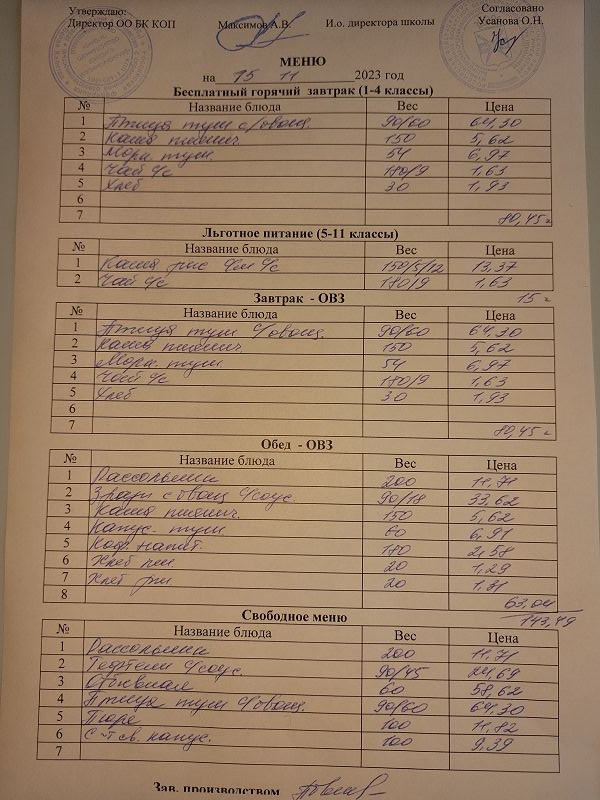 Утверждаю:
Директор ОО БК КОП Максимов А.В. И.о. директора школы
Согласовано
Усанова О.Н.
МЕНЮ
на 15 11 2023 год
Бесплатный горячий завтрак (1-4 классы)
№ Название блюда Вес Цена
1 Птица туш с/овощ. 90/60 64,30
2 Каша пшенич. 150 5,62
3 Морк. туш 54 6,97
4 Чай с/с 180/9 1,63
5 Хлеб 30 1,93
6
7 80,45
Льготное питание (5-11 классы)
№ Название блюда Вес Цена
1 Каша рис 150/5/12 13,37
2 Чай с/с 180/9 1,63
15
Завтрак - ОВЗ
№ Название блюда Вес Цена
1 Птица туш с/овощ 90/60 64,30
2 Каша пшенич. 150 5,62
3 Морк. туш 54 6,97
4 Чай с/с 180/9 1,63
5 Хлеб 30 1,93
6
7 80,45
Обед - ОВЗ
№ Название блюда Вес Цена
1 Рассольник 200 11,71
2 Зразы с овощ с/соус. 90/18 33,62
3 Каша пшенич. 150 5,62
4 Капус. туш 60 6,91
5 Коф. напит. 180 2,58
6 Хлеб пш 20 1,29
7 Хлеб рж 20 1,31
8 63,04
143,49
Свободное меню
№ Название блюда Вес Цена
1 Рассольник 200 11,71
2 Тефтели с/соус. 90/45 24,69
3 60 58,62
4 Птица туш с/овощ. 90/60 64,30
5 Пюре 100 11,82
6 С-т св. капус. 100 9,39
7
Зав. производством